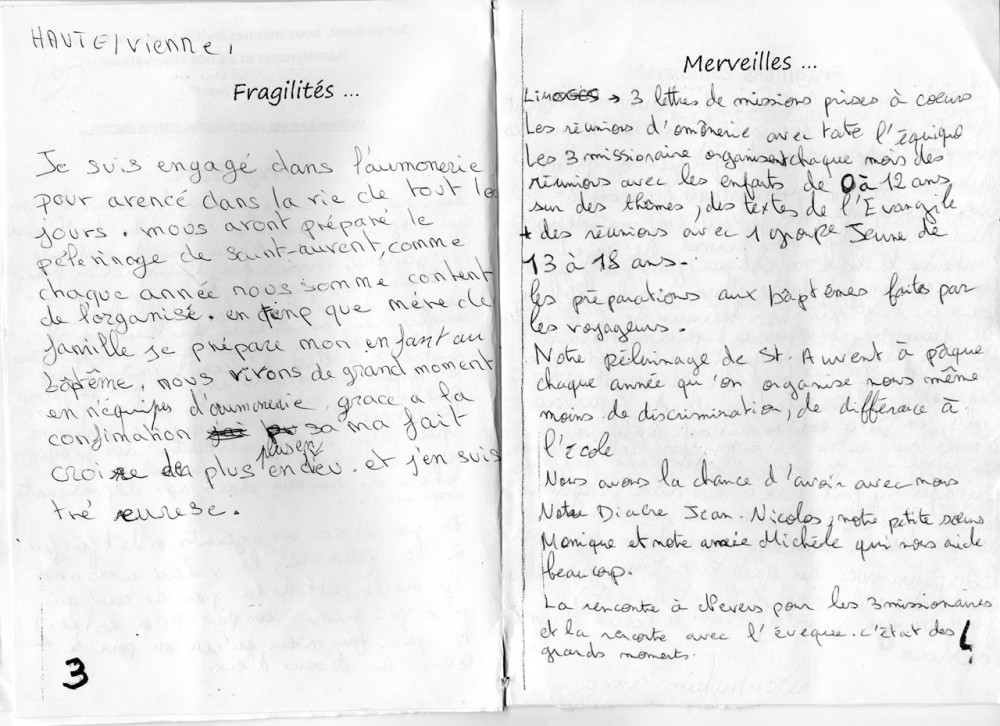 HAUTE/Vienne,
Fragilités ...
Je suis engagé dans l'aumonerie
pour avencé dans la vie de tout les
jours. nous avont préparé le
pélerinage de Saint-auvent, comme
chaque année nous somme content
de l'organisé. en temp que mère de
famille je prépare mon enfant au
bâptême, nous vivons de grand moment
en n'équipes d'aumonerie, grace a la
confimation sa ma fait
croire plus en dieu. et j'en suis
tré eurese.
3
Merveilles ...
Limoges → 3 lettres de missions prises à coeurs
Les réunions d'omônerie avec tate l'équipe
Les 3 missionaire organisent chaque mois des
réunions avec les enfants de 0 à 12 ans
sur des thèmes, des textes de l'Evangile
+ des réunions avec 1 groupe Jeune de
13 à 18 ans.
les préparations aux baptêmes faites par
les voyageurs.
Notre pélerinage de St. Auvent a pâque
chaque année qu'on organise nous même
moins de discrimination, de différence à
l'école
Nous avons la chance d'avoir avec nous
Notre Diacre Jean-Nicolas, notre petite soeurs
Monique et notre amie Michèle qui nous aide
beaucoup.
La rencontre à Nevers pour les 3 missionaires
et la rencontre avec l'évêque. c'était des
grands moments.
4